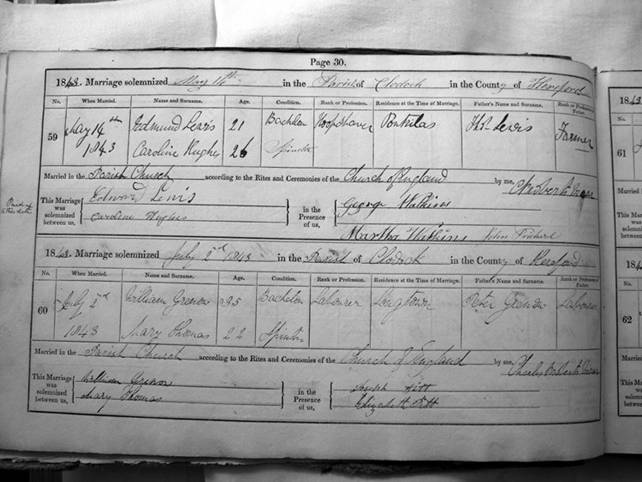 Page 30.
1843. Marriage solemnized May 14th in the Parish of Clodock in the County of Hereford
No. When Married. Name and Surname. Age. Condition. Rank or Profession. Residence at the Time of Marriage. Father's Name and Surname. Rank or Profession of Father.
59 May 14th Edmund Lewis 21 Bachelor Hoopshaver Pontrilas Lewis Farmer
1843 Caroline Hughes 26 Spinster
Married in the Parish Church according to the Rites and Ceremonies of the Church of England by me, Vicar
This Marriage was solemnized between us, Edward Lewis in the Presence of us, George Watkins
Caroline Hughes Martha Watkins
1843. Marriage solemnized July 2nd 1843 in the Parish of Clodock in the County of Hereford
No. When Married. Name and Surname. Age. Condition. Rank or Profession. Residence at the Time of Marriage. Father's Name and Surname. Rank or Profession of Father.
60 July 2nd William Grenow 25 Bachelor Labourer Longtown Peter Grenow Labourer
1843 Mary Thomas 22 Spinster
Married in the Parish Church according to the Rites and Ceremonies of the Church of England by me, Vicar
This Marriage was solemnized between us, William Grenow in the Presence of us, Joseph
Mary Thomas Elizabeth
184
61
184
62